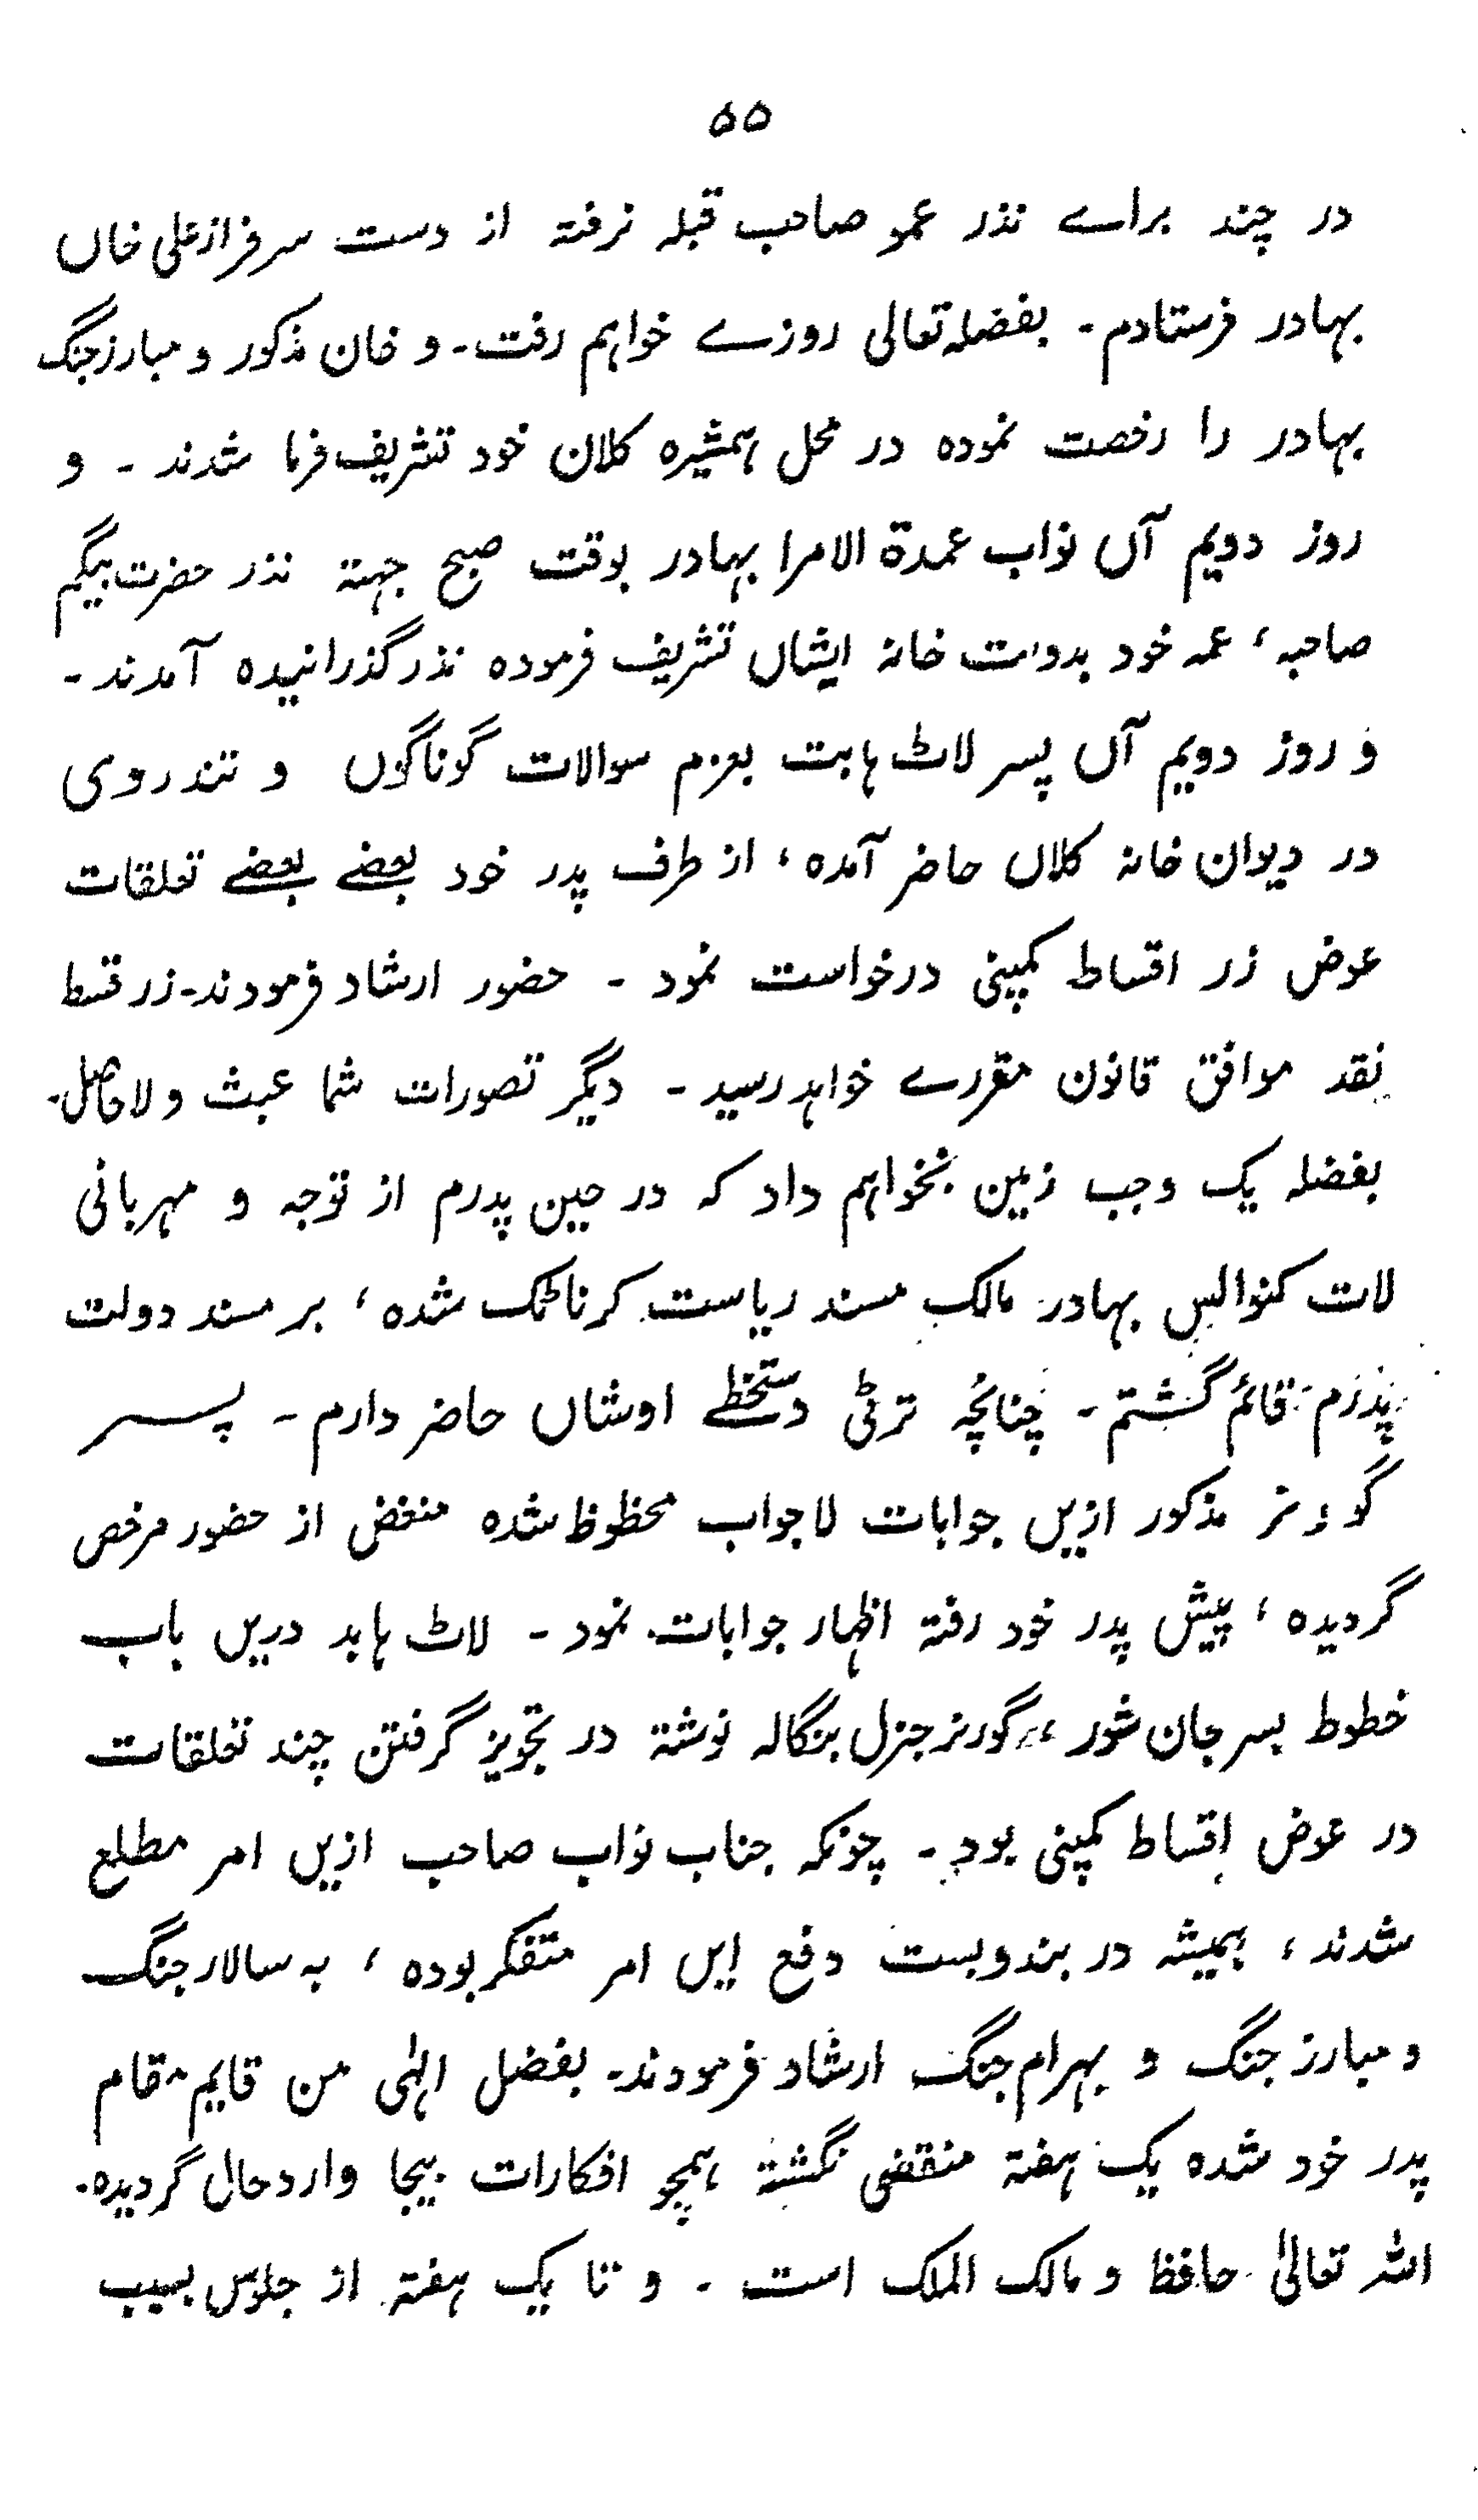 ۵۵
در چند براے نذر عمو صاحب قبله نرفته از دست سرفراز علی خاں
بهادر فرستادم - بفضله تعالی روزے خواهم رفت - و خان مذکور و مبارز جنگ
بهادر را رخصت نموده در محل همشیره کلان خود تشریف فرما شدند - و
روز دویم آں نواب عمدة الامرا بهادر بوقت صبح جهة نذر حضرت بیگم
صاحبه، عمه خود بدولت خانه ایشاں تشریف فرموده نذر گذرانیده آمدند -
و روز دویم آں پسر لاٹ هابت بعزم سوالات گوناگوں و تند روی
در دیوان خانه کلاں حاضر آمده، از طرف پدر خود بعضے بعضے تعلقات
عوض زر اقساط کمپنی درخواست نمود - حضور ارشاد فرمودند - زر قسط
نقد موافق قانون مقررے خواهد رسید - دیگر تصورات شما عبث و لاحاصل -
بفضله یک وجب زمین نخواهم داد که در حین پدرم از توجه و مهربانی
لات کنوالس بهادر مالک مسند ریاست کرناٹک شده، بر مسند دولت
پدرم قائم گشتم - چنانچه ترٹی دستخطے اوشاں حاضر دارم - پسر
گورنر مذکور ازیں جوابات لاجواب محظوظ شده منغض از حضور مرخص
گردیده، پیش پدر خود رفته اظهار جوابات نمود - لاٹ هابد دریں باب
خطوط بسر جان شور، گورنر جنرل بنگاله نوشته در تجویز گرفتن چند تعلقات
در عوض اقساط کمپنی بود - چونکه جناب نواب صاحب ازیں امر مطلع
شدند، همیشه در بندوبست دفع ایں امر متفکر بوده، به سالار جنگ
و مبارز جنگ و بهرام جنگ ارشاد فرمودند - بفضل الهٰی من قایم مقام
پدر خود شده یک هفته منقضی نگشته همچو افکارات بیجا وارد حال گردیده -
الله تعالیٰ حافظ و مالک الملک است - و تا یک هفته از جلوس بسبب